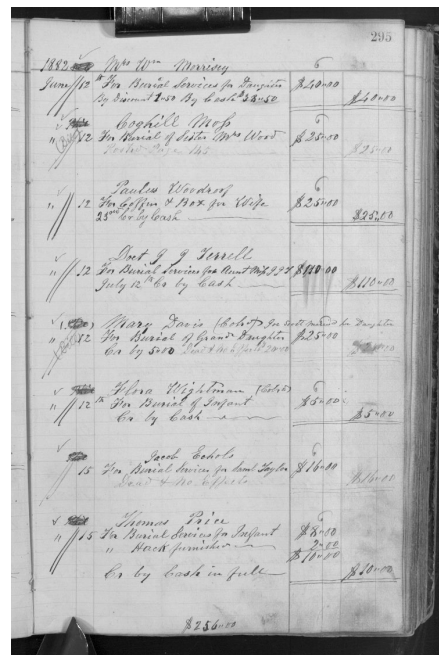 295
1882 Mrs Wm Morrisey 6
June 12 th For Burial Services for Daughter $40-00
By Discount 1-50 By Cash $38-50 $40-00
Coghill Moss
" 12 For Burial of Sister Mrs Wood $25-00
Page 145 $25-00
Paulus Woodroof 6
" 12 For Coffin & Box for Wife $25-00
25 Cr by Cash $25-00
Doct J J Terrell
" 12 For Burial Services for Aunt $110-00
July 12th Cr by Cash $110-00
Mary Davis (Cold) for Daughter
12 For Burial of Grand Daughter $25-00
Cr by 5-00 Dead & No Effects 20-00
Flora Wightman (Cold) 6
" 12 th For Burial of Infant $5-00
Cr by Cash $5-00
Jacob Echols 6
15 For Burial Services for Taylor $16-00
Dead & No Effects $16-00
Thomas Price 6
" 15 For Burial Services for Infant $8-00
" Hack furnished 2-00
$10-00
Cr by Cash in full $10-00
$256-00